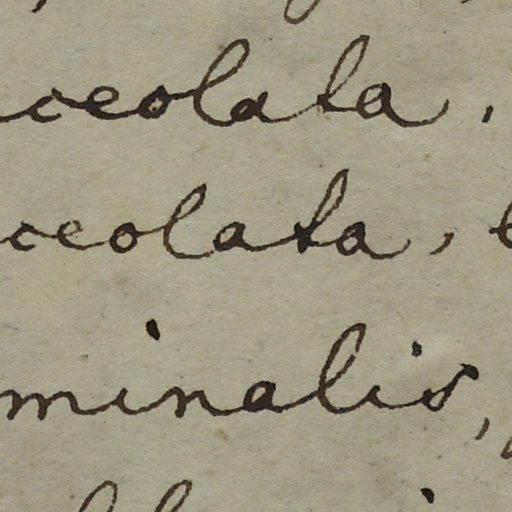 ceolata,
ceolata,
minalis,